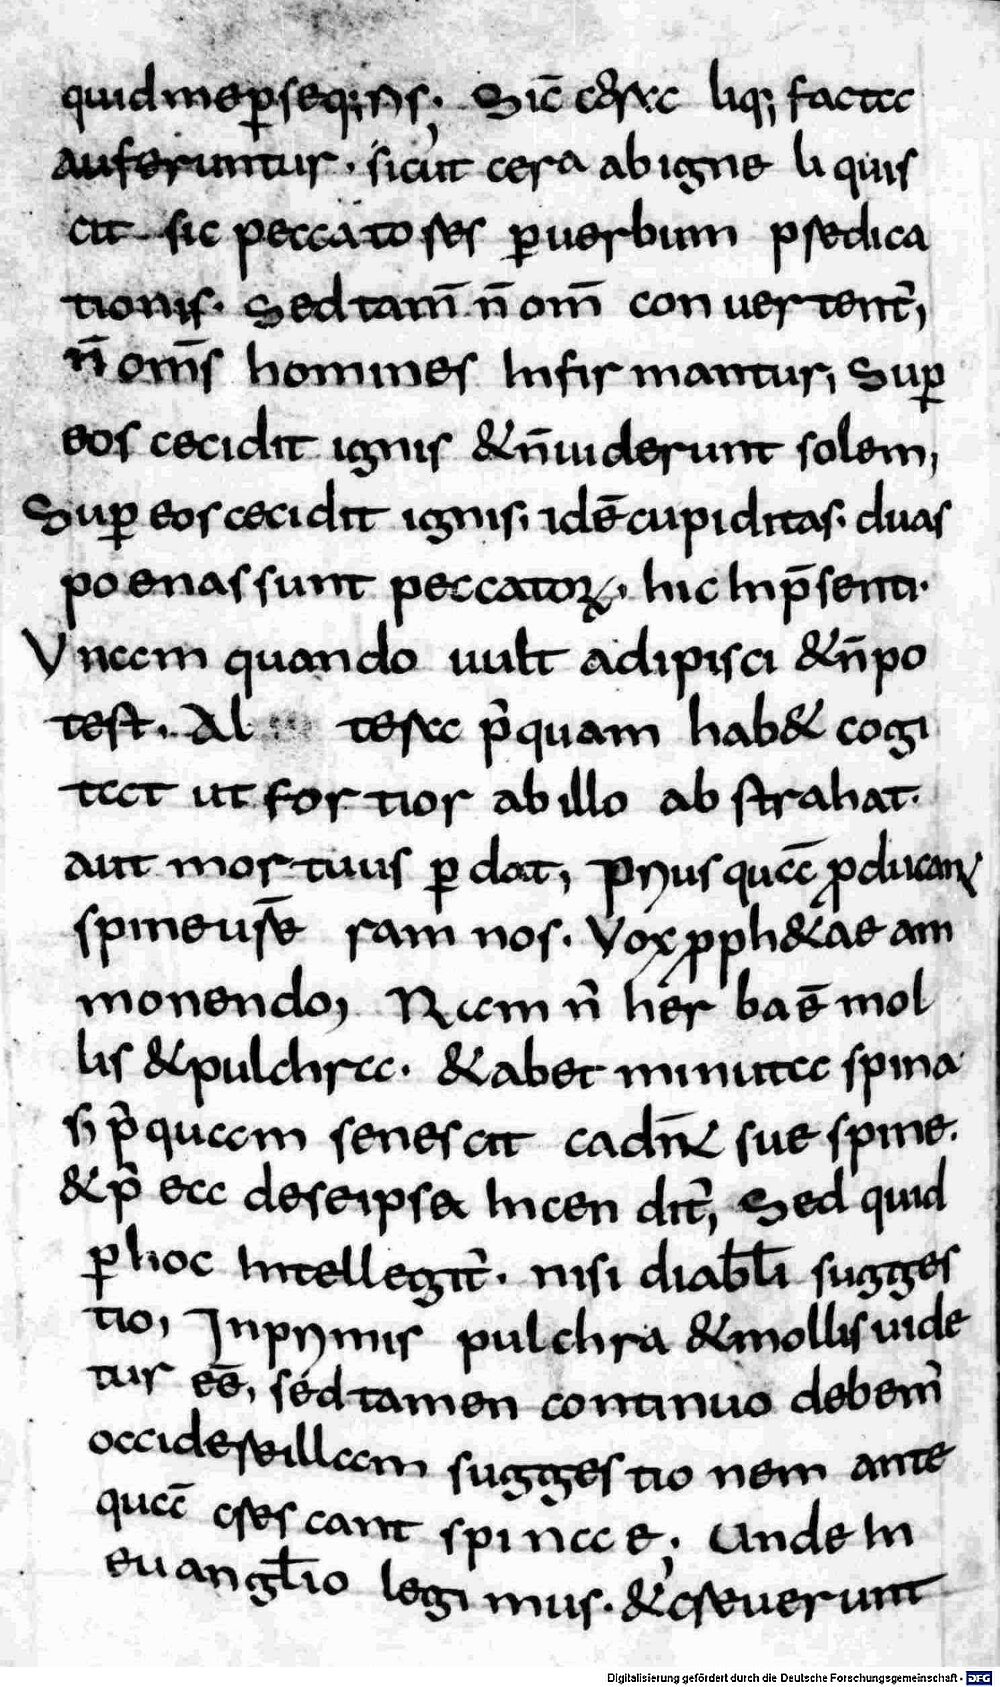 quid me ꝑseq;ris. Sic̄ cera liq; facta
auferuntur. sicut cera ab igne liquis
cit sic peccatores ꝑ uerbum predica
tionis. Sed tam̄ n̄ om̄ conuertent᷑,
n̄ om̄s homines Infirmantur, Suꝑ
eos cecidit ignis & n̄ uiderunt solem,
Suꝑ eos cecidit ignis. id ē cupiditas. duas
poenas sunt peccatoꝝ. hic In p̄senti.
Vnam quando uult adipisci & n̄ po
test. Al tera p̓quam hab& cogi
tat ut fortior ab illo abstrahat.
aut mortuus ꝑdat, Priusquā ꝓducant
spine ur̄e ramnos. Vox ꝓph&ae am
monendo, Ram n̄ herba ē mol
lis & pulchra. & abet minuta spina
s; p̓quam senescit cadn̄t sue spine.
& p̓ ea de se ipsa Incendit᷑, Sed quid
ꝑ hoc Intellegit᷑. nisi diabƚi sugges
tio, In primis pulchra & mollis uide
tur eē, sed tamen continuo debem᷒
occidere illam suggestionem ante
quā crescant spinae; Unde In
euangƚio legimus. & creuerunt